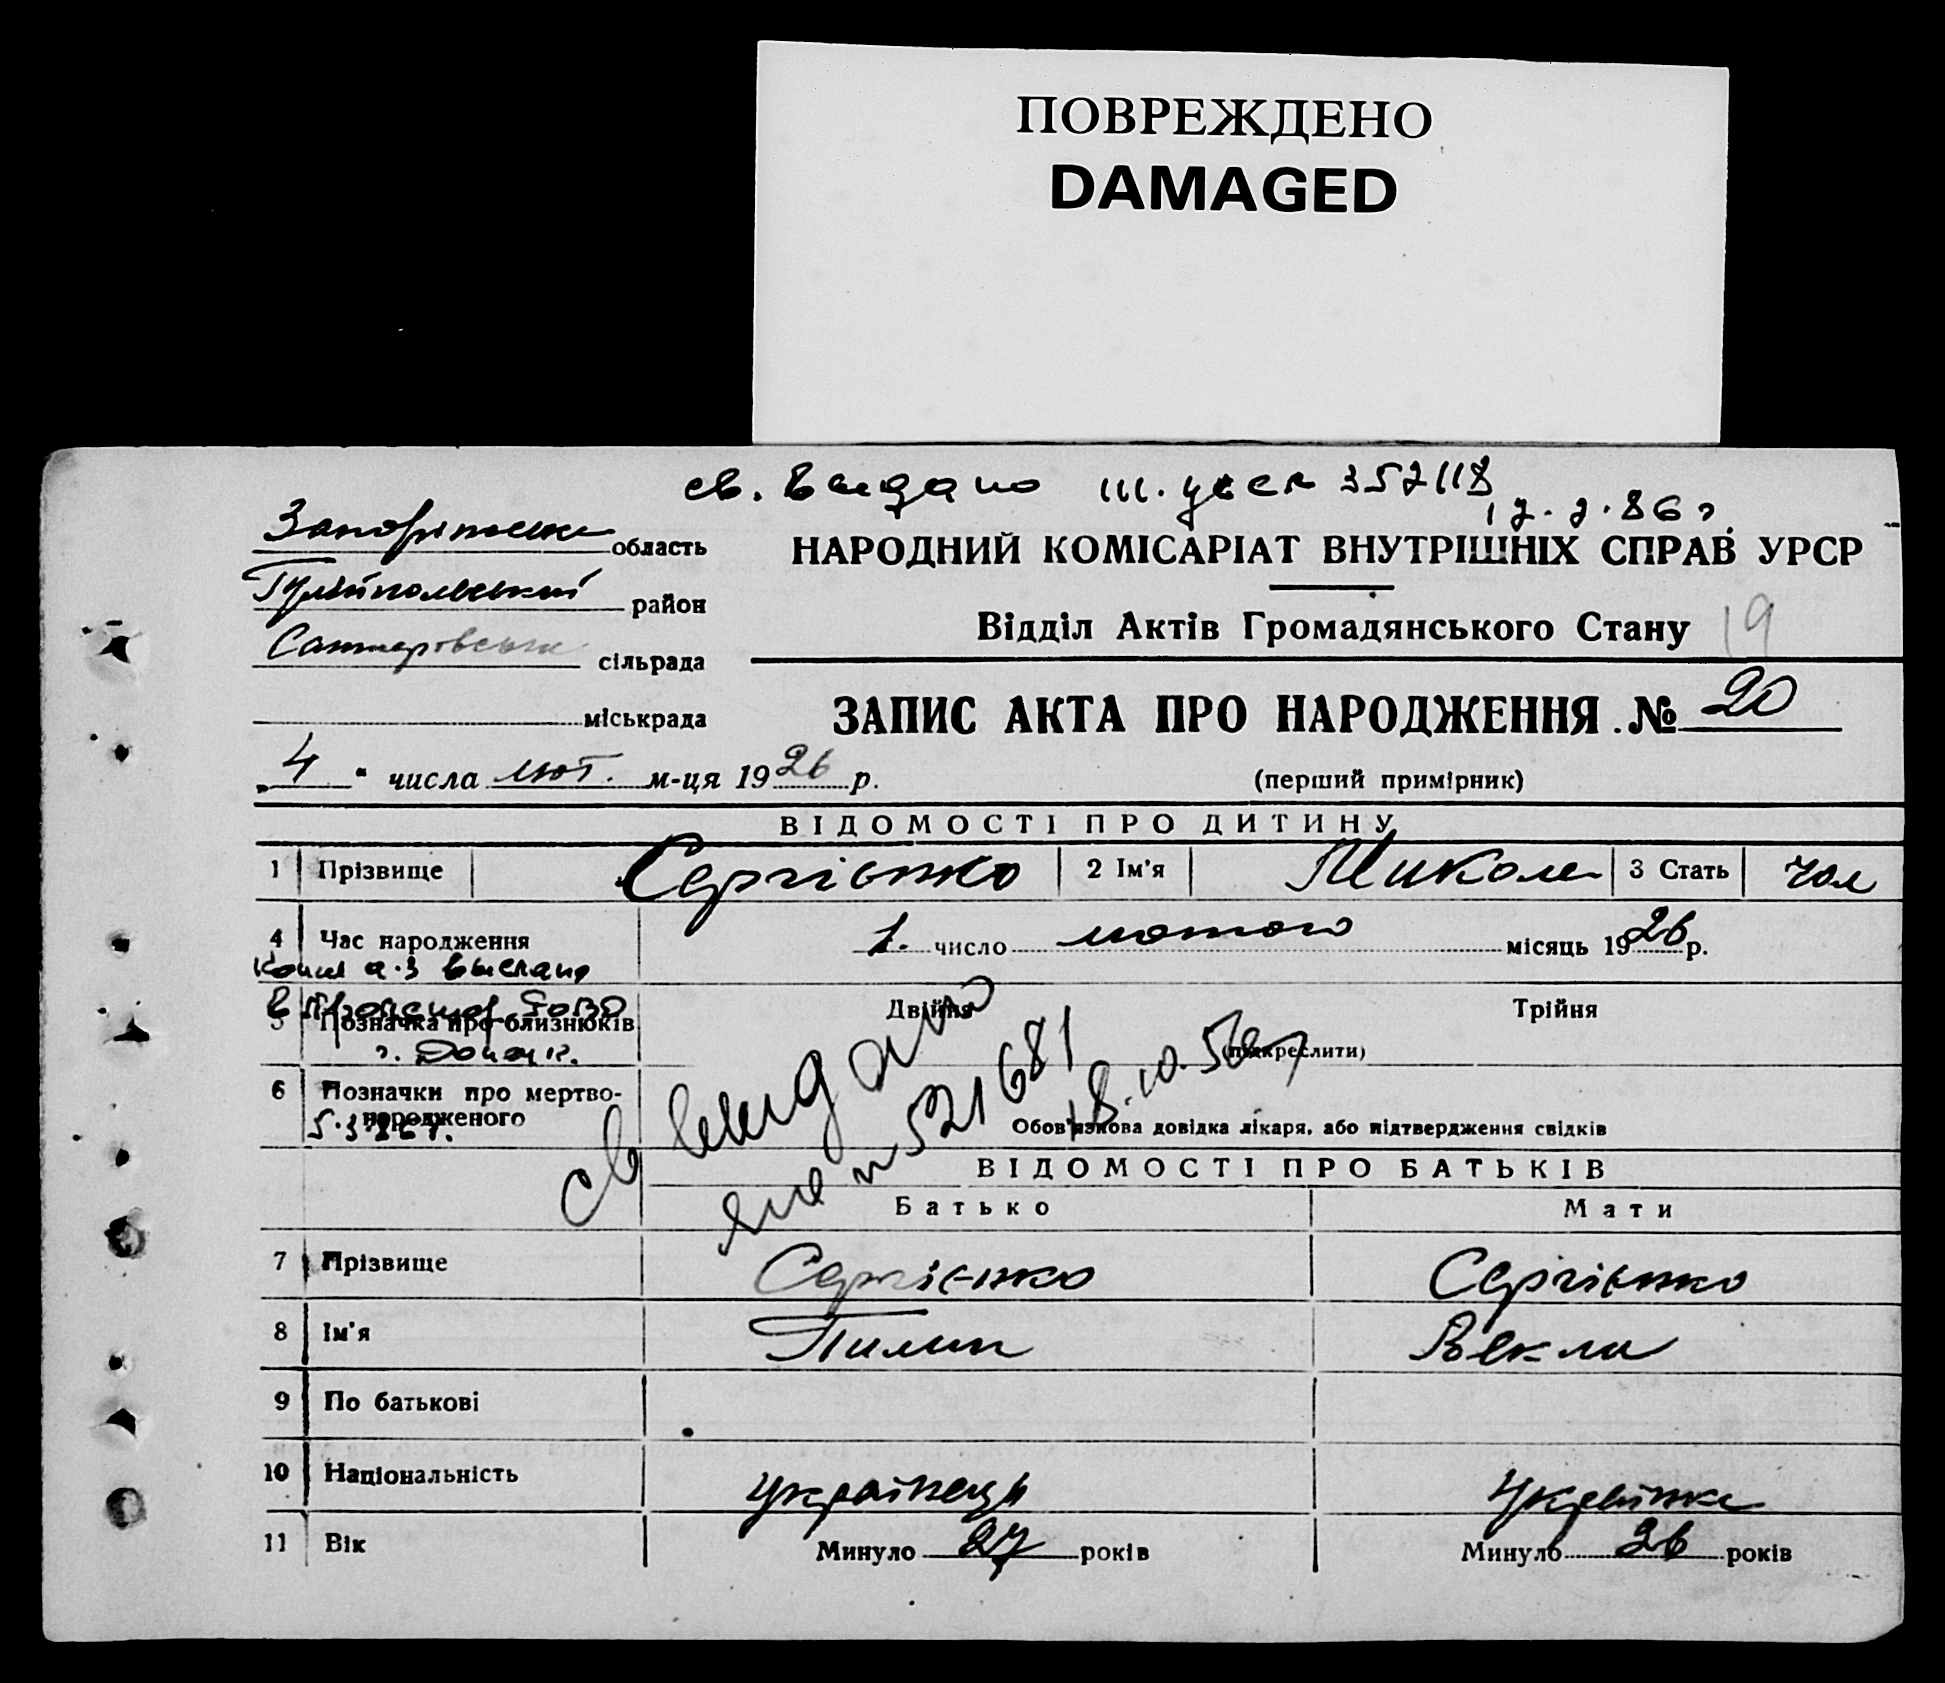 ПОВРЕЖДЕНО
DAMAGED
св. выдано III. 352118
17.2.86 г.
область
НАРОДНИЙ КОМІСАРІАТ ВНУТРІШНІХ СПРАВ УРСР
Гуляйпольський район
Відділ Актів Громадянського Стану 19
сільрада
міськрада
ЗАПИС АКТА ПРО НАРОДЖЕННЯ № 20
„4“ числа лют. м-ця 1926 р.
(перший примірник)
ВІДОМОСТІ ПРО ДИТИНУ
1 Прізвище Сергієнко 2 Ім'я Микола 3 Стать Чол
4 Час народження 1. число лютого місяць 1926 р.
копия а.з выслана
в Пролетар
г. Донецк.
5 Позначка про близнюків Двійня Трійня
(підкреслити)
6 Позначки про мертвонародженого
5.3.86 г.
Обов'язкова довідка лікаря, або підтвердження свідків
св выдано
521681
18.10.56 г
ВІДОМОСТІ ПРО БАТЬКІВ
Батько Мати
7 Прізвище Сергієнко Сергієнко
8 Ім'я Пилип Векла
9 По батькові
10 Національність Українець Українка
11 Вік Минуло 27 років Минуло 26 років